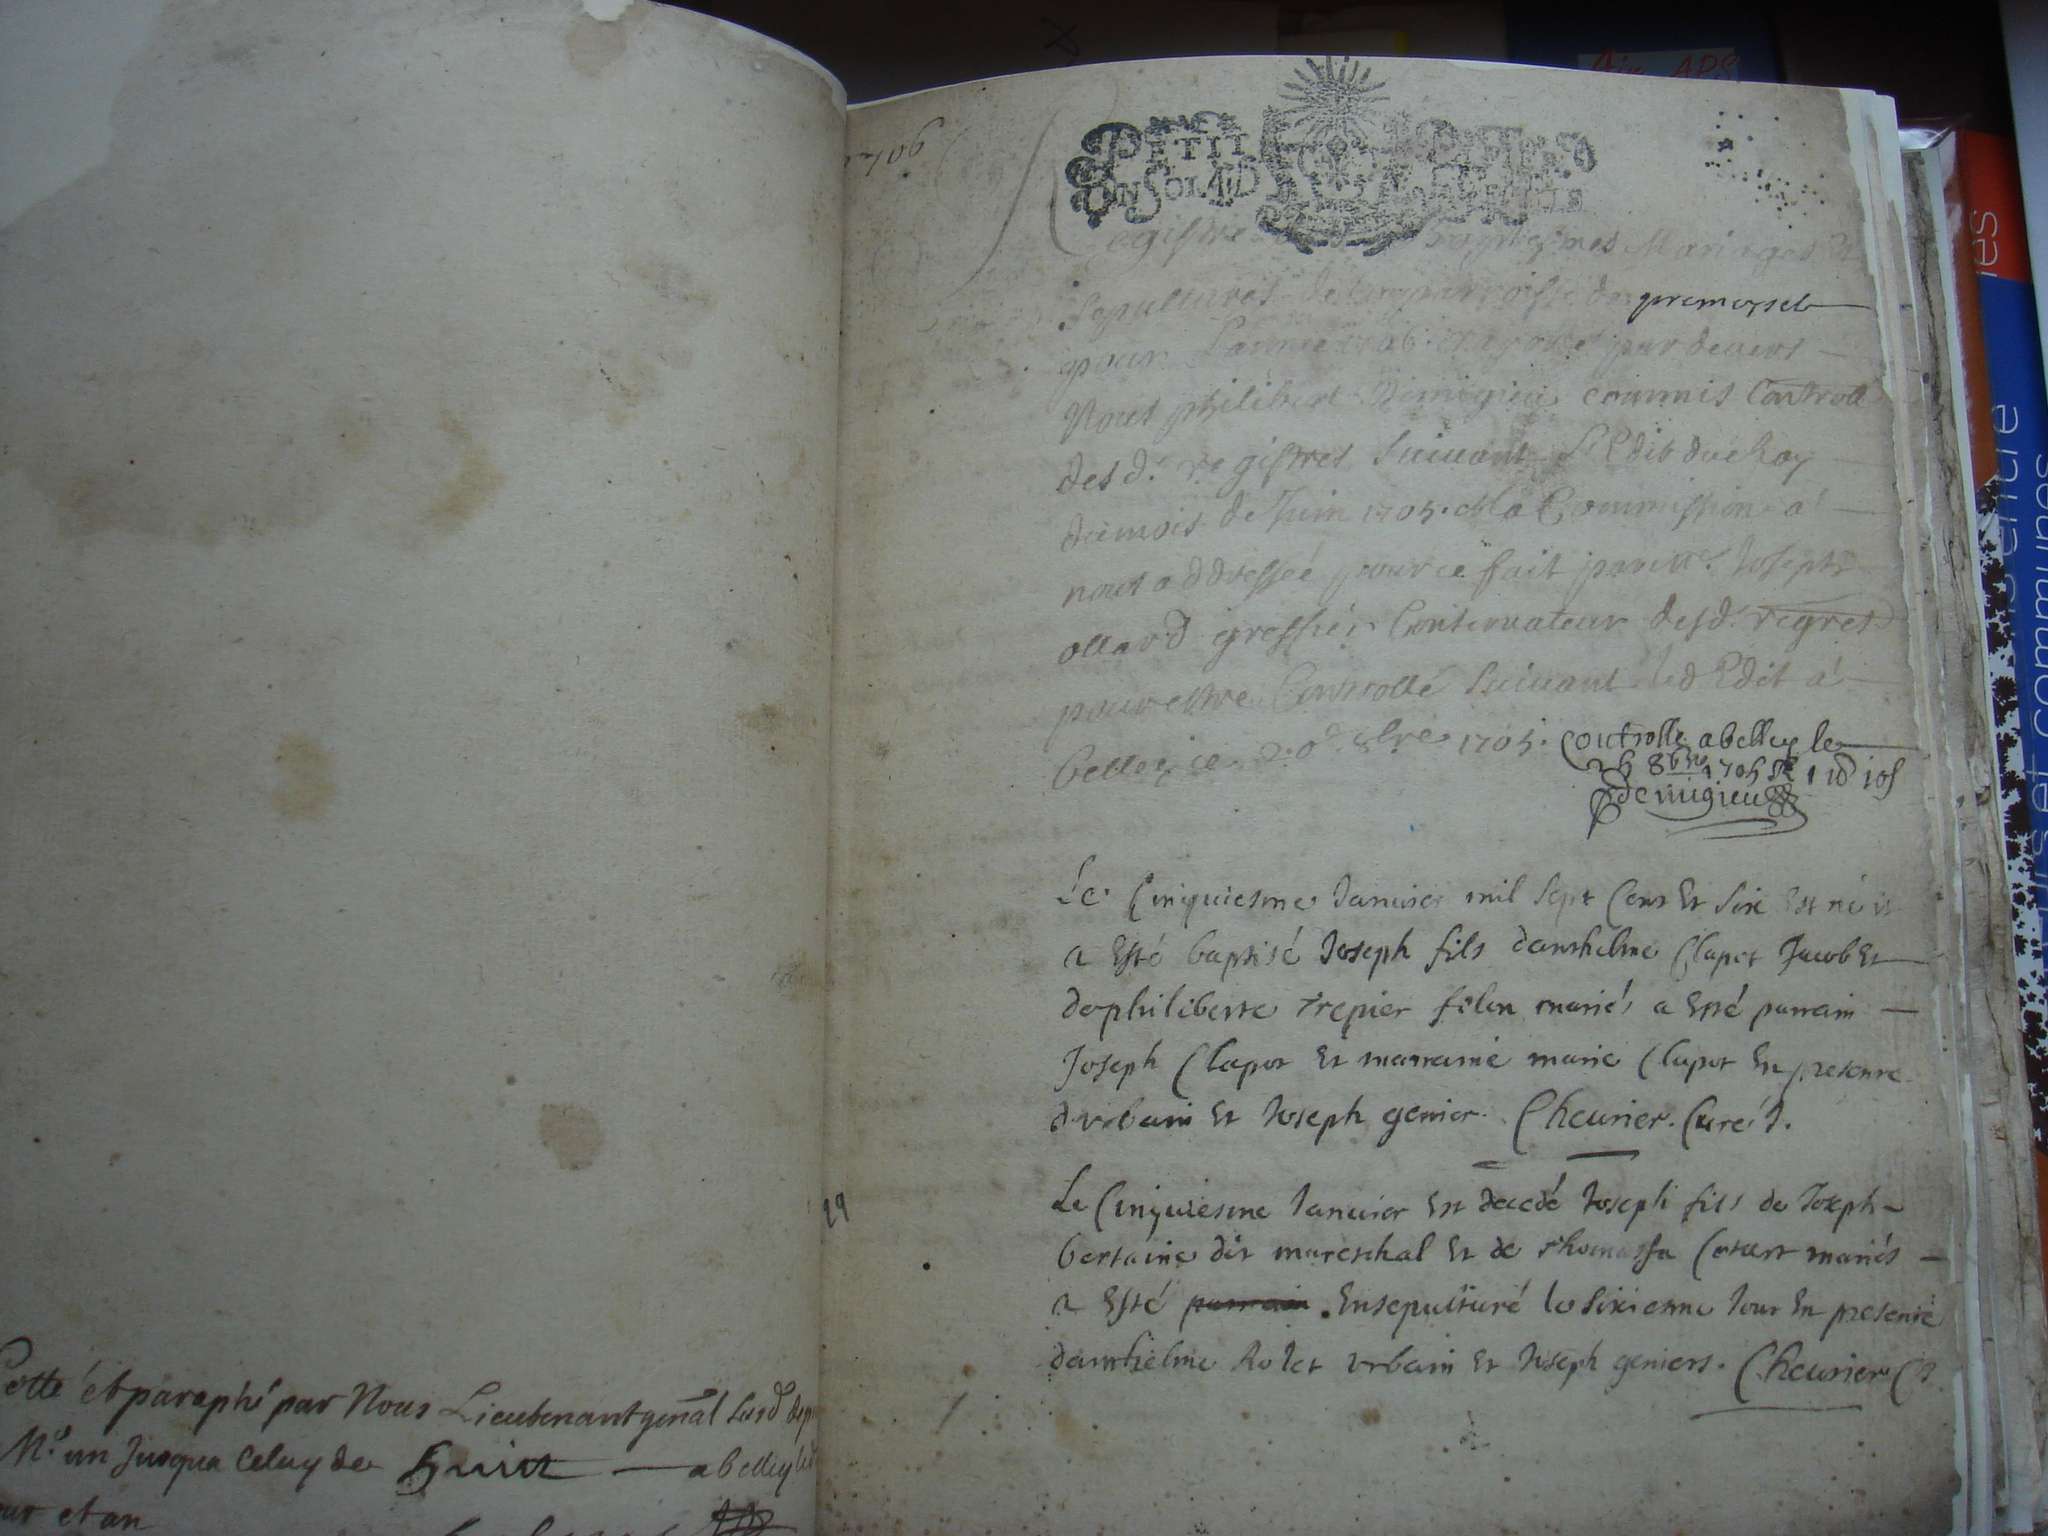 1706
PETIT
UN SOL
Registre Baptesmes Mariages &
Sepultures de la parroisse de premeysel
pour L'année par devers
Nous philibert Demigieu commis Controll
des d. registres Suiuant L'Edit du Roy
du mois de Juin 1705. & la Commission a
nous addressée pour ce fait par Mr. Joseph
ollard greffier Conseruateur desd. regres
pour estre Controllé Suiuant led Edit á
Belley ce 20e 8bre 1705. Controlle a belley le
8bre 1705 R
Demigieu
Le Cinquiesme Januier mil sept Cens Et Six Est né
a Esté baptisé Joseph fils danthelme Clapot Jacob Et
de philiberte trepier filon mariés a Esté parrain
Joseph Clapot Et marraine marie Clapot En presence
durbain Et Joseph genier. Cheurier. Curé.
29
Le Cinquiesme Januier Est decedé Joseph fils de Joseph
bertaine dit mareschal Et de thomassa mariés
a Esté parrain Ensepulturé le Sixiesme Jour En presence
danthelme Rolet Vrbain Et Joseph geniers. Cheurier C
Cotté et paraphé par Nous Lieutenant gñal
No. un Jusqua Celuy de huict a belley
et an